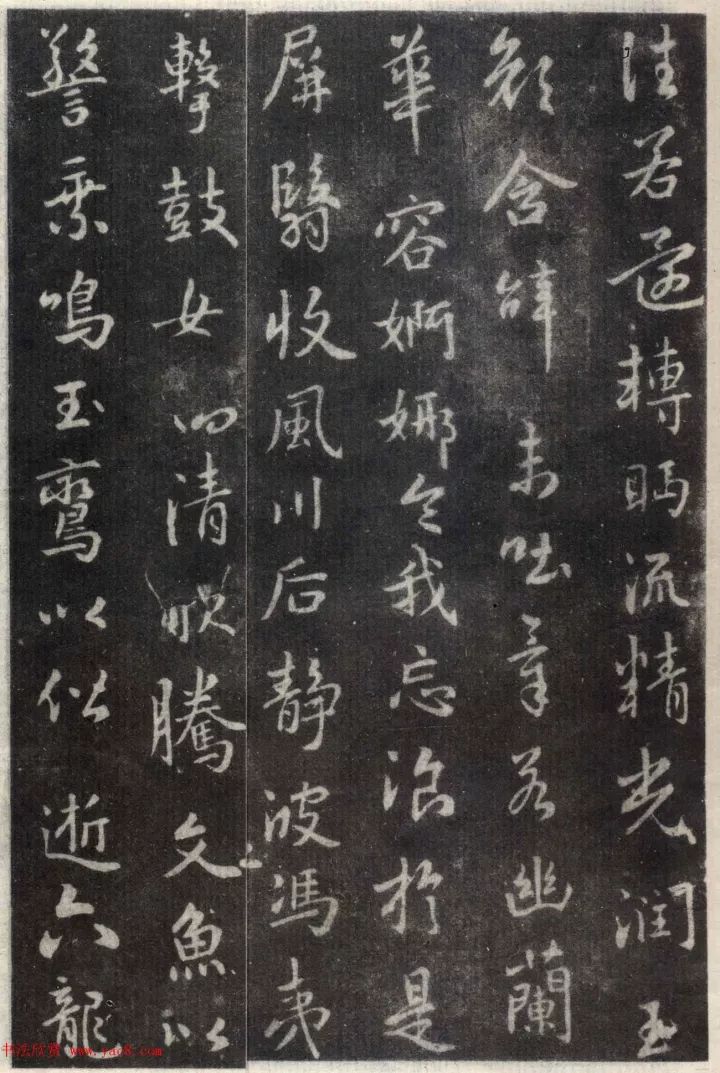 往若還轉眄流精光潤玉
顏含辭未吐氣若幽蘭
華容婀娜令我忘湌於是
屏翳收風川后靜波馮夷
擊鼓女媧清歌騰文魚以
警乗鳴玉鸞以偕逝六龍
书法欣赏 www.yac8.com